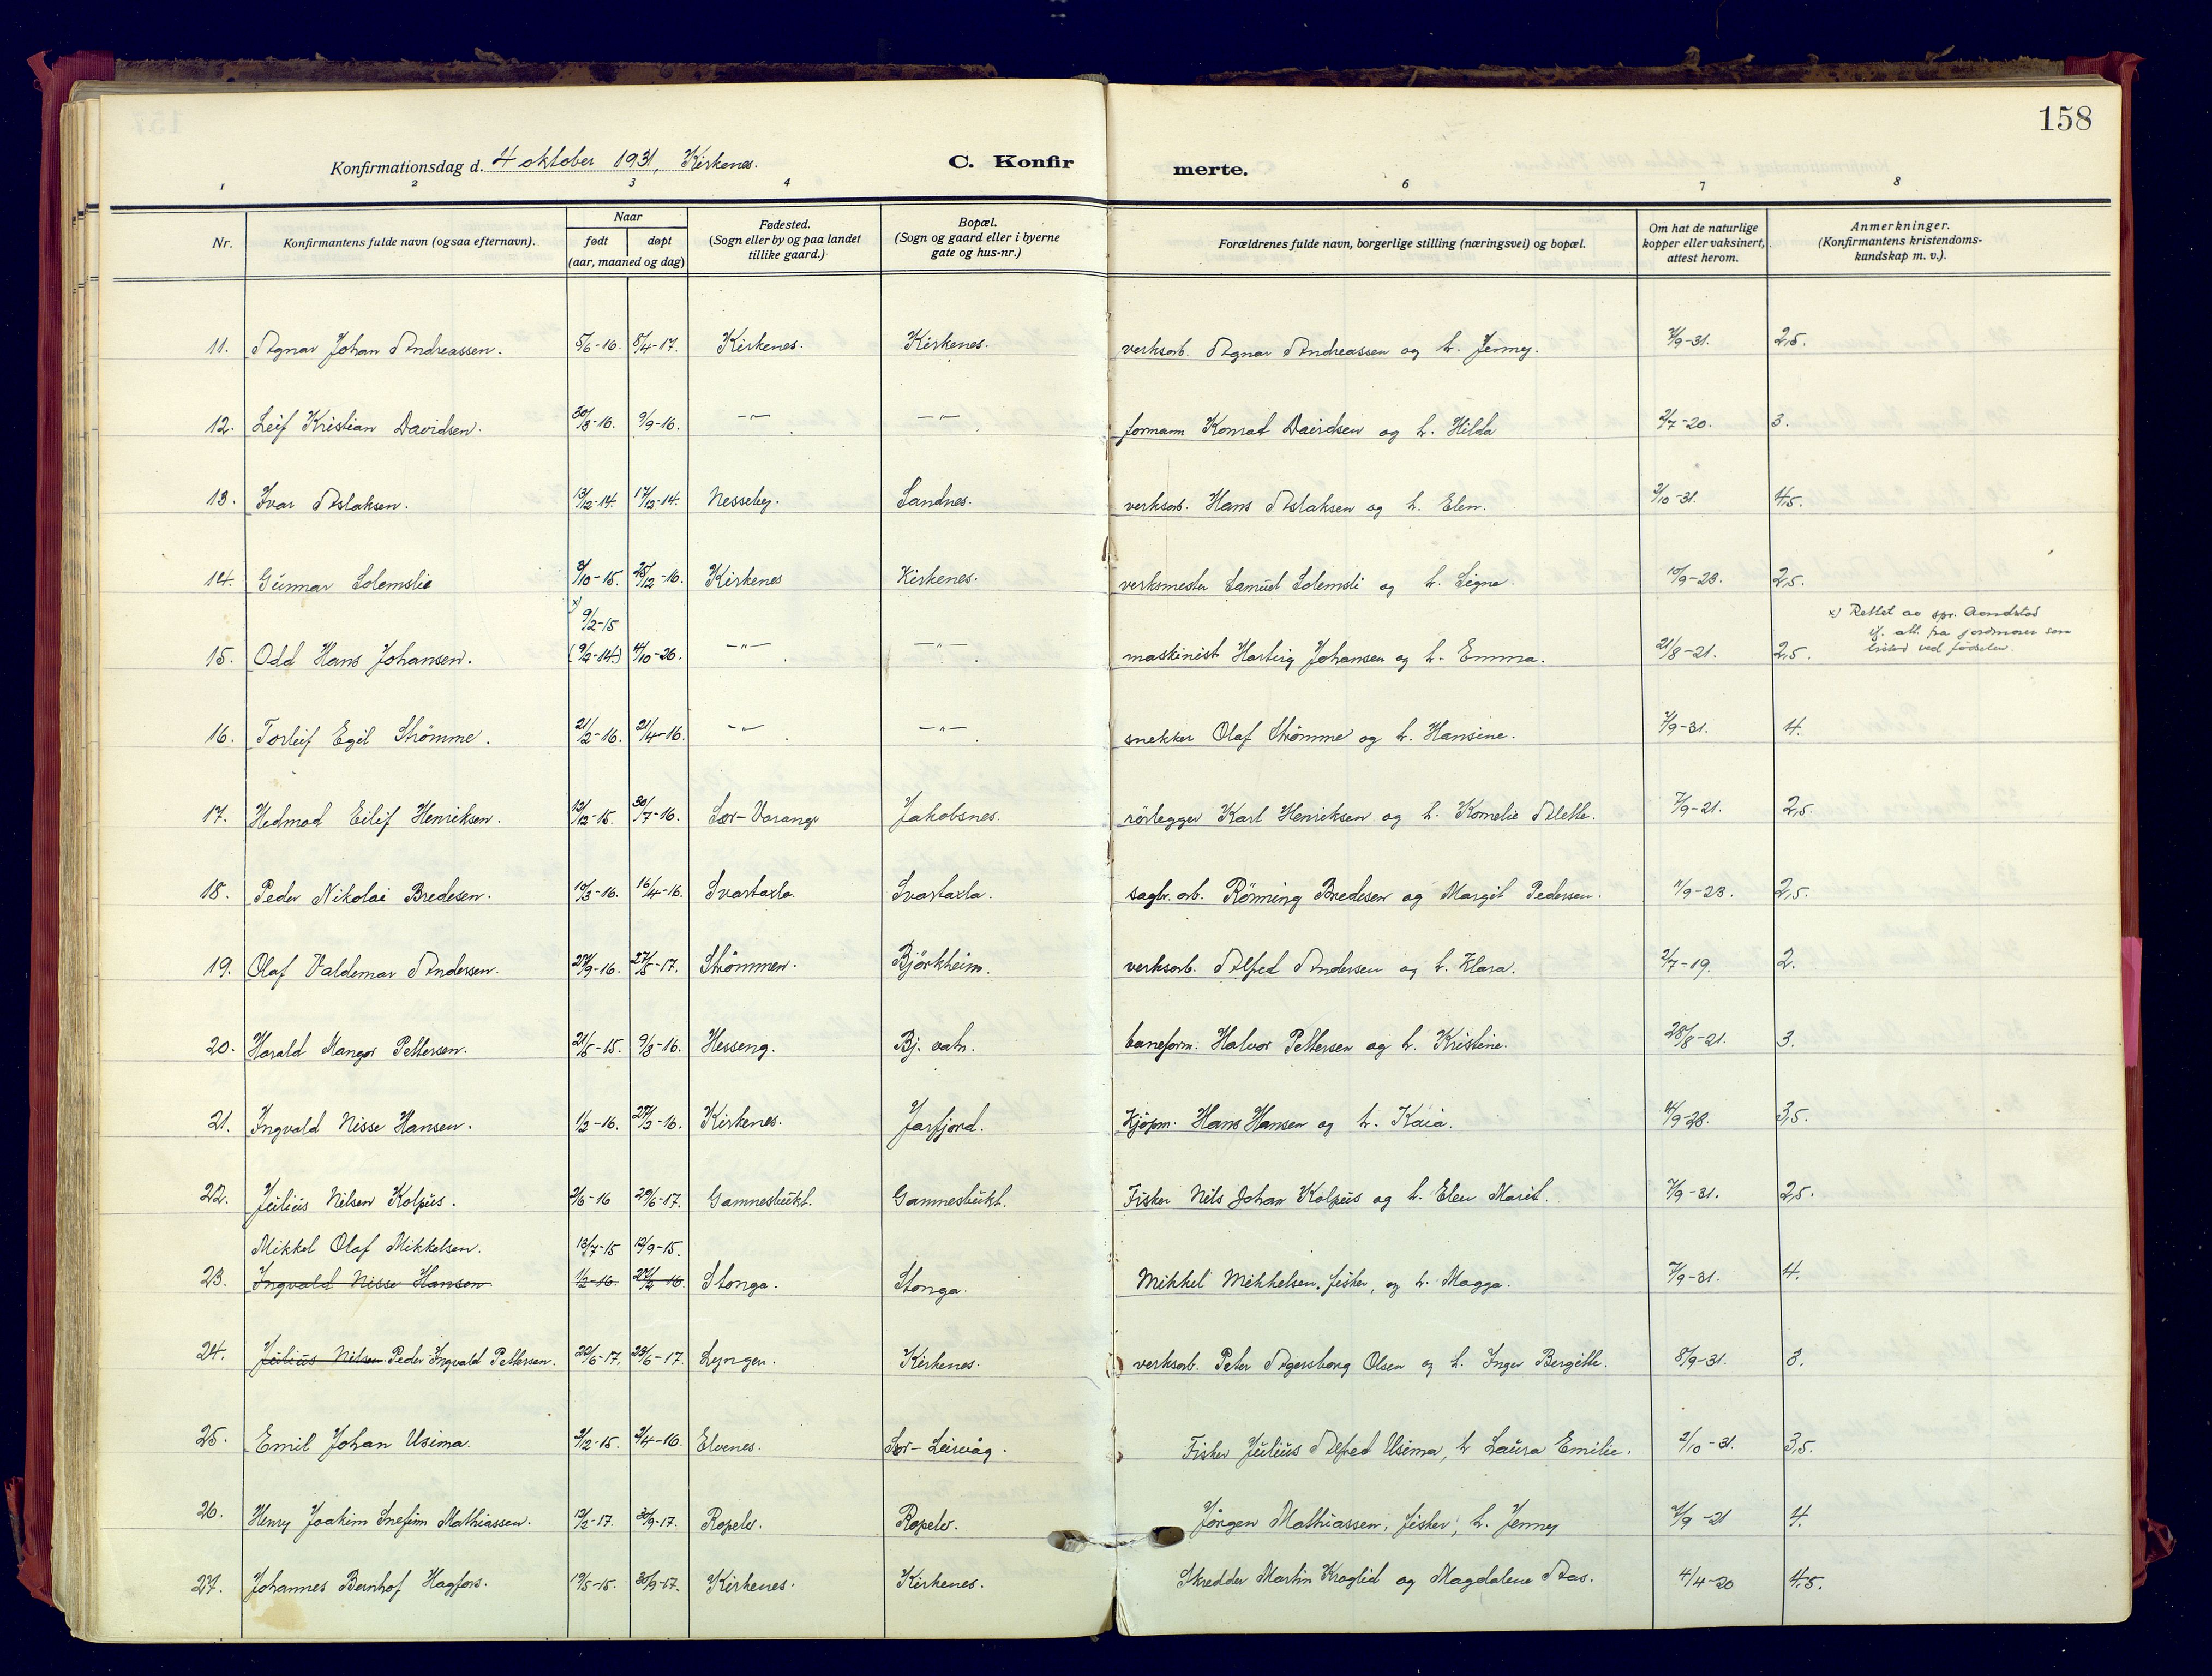 158
Konfirmationsdag d. 4 oktober 1931, Kirkenes. C. Konfirmerte.
1 2 3 4 6 7 8
Nr. Konfirmantens fulde navn (ogsaa efternavn). Naar født døpt (aar, maaned og dag) Fødested. (Sogn eller by og paa landet tillike gaard.) Bopæl. (Sogn og gaard eller i byerne gate og hus-nr.) Forældrenes fulde navn, borgerlige stilling (næringsvei) og bopæl. Om hat de naturlige kopper eller vaksinert, attest herom. Anmerkninger. (Konfirmantens kristendomskundskap m. v.).
11. Agnar Johan Andreassen. 5/6-16. 8/4-17. Kirkenes. Kirkenes. verksarb. Agnar Andreassen og h. Jenny. 7/9-31. 2,5.
12. Leif Kristian Davidsen. 30/8-16. 9/9-16. -"- -"- formann Konrad Davidsen og h. Hilda 2/7-20. 3.
13. Ivar Aslaksen. 13/12-14. 17/12-14. Nesseby. Sandnes. verksarb. Hans Aslaksen og h. Elen. 2/10-31. 4,5.
14. Gunnar Solemslie 2/10-15. 25/12-16. Kirkenes Kirkenes. verksmester Samuel Solemsli og h. Signe. 10/9-23. 2,5.
x) 9/2-15
x) Rettet av spr. Aandstad
if. att. fra jordmoren som
bistod ved fødselen.
15. Odd Hans Johansen. (9/2-14) 4/10-26. -"- -"- maskinist Hartvig Johansen og h. Emma. 21/8-21. 2,5.
16. Torleif Egil Strømme. 21/2-16. 21/4-16. -"- -"- snekker Olaf Strømme og h. Hansine. 7/9-31. 4.
17. Hedmod Eilif Henriksen. 12/12-15. 30/7-16. Sør-Varanger Jakobsnes. rørlegger Karl Henriksen og h. Kornelie Alette. 7/9-21. 2,5.
18. Peder Nikolai Bredesen. 10/3-16. 16/4-16. Svartaxla. Svartaxla. sagbr. arb. Rønning Bredesen og Margit Pedersen. 11/9-23. 2,5.
19. Olaf Valdemar Andersen. 24/9-16. 27/5-17. Strømmen. Bjørkheim. verksarb. Alfred Andersen og h. Klara. 2/7-19. 2.
20. Harald Mangor Pettersen. 21/5-15. 9/8-16. Hesseng. Bj. vatn. baneform. Halvor Pettersen og h. Kristine. 28/8-21. 3.
21. Ingvald Nisse Hansen. 1/2-16. 27/2-16. Kirkenes. Jarfjord. Kjøpm. Hans Hansen og h. Kaia. 14/9-28. 3,5.
22. Julius Nilsen Kolpus. 2/6-16 29/6-17. Gamnesbukt. Gamnesbukt. Fisker Nils Johan Kolpus og h. Elen Marit. 7/9-31. 2,5.
Mikkel Olaf Mikkelsen. 13/7-15 12/9-15.
23. Ingvald Nisse Hansen. 1/2-16. 27/2-16. Stonga. Stonga. Mikkel Mikkelsen, fisker, og h. Magga. 7/9-31. 4.
24. Julius Nilsen Peder Ingvald Pettersen. 22/6-17. 23/6-17. Lyngen. Kirkenes. verksarb. Peter Agersborg Olsen og h. Inger Bergitte. 8/9-31. 3.
25. Emil Johan Usima. 9/12-15. 2/4-16. Elvenes. Sør-Leirvåg. Fisker Julius Alfred Usima, h Laura Emilie. 2/10-31. 3,5.
26. Henry Joakim Snefinn Mathiassen. 12/2-17. 30/9-17. Ropelv. Ropelv. Jørgen Mathiassen, fisker, h. Jenny 7/9-21 4.
27. Johannes Bernhof Hagfors. 19/5-15. 30/9-17. Kirkenes. Kirkenes. Skredder Martin Kroglid og Magdalene Aas. 4/4-20 4,5.